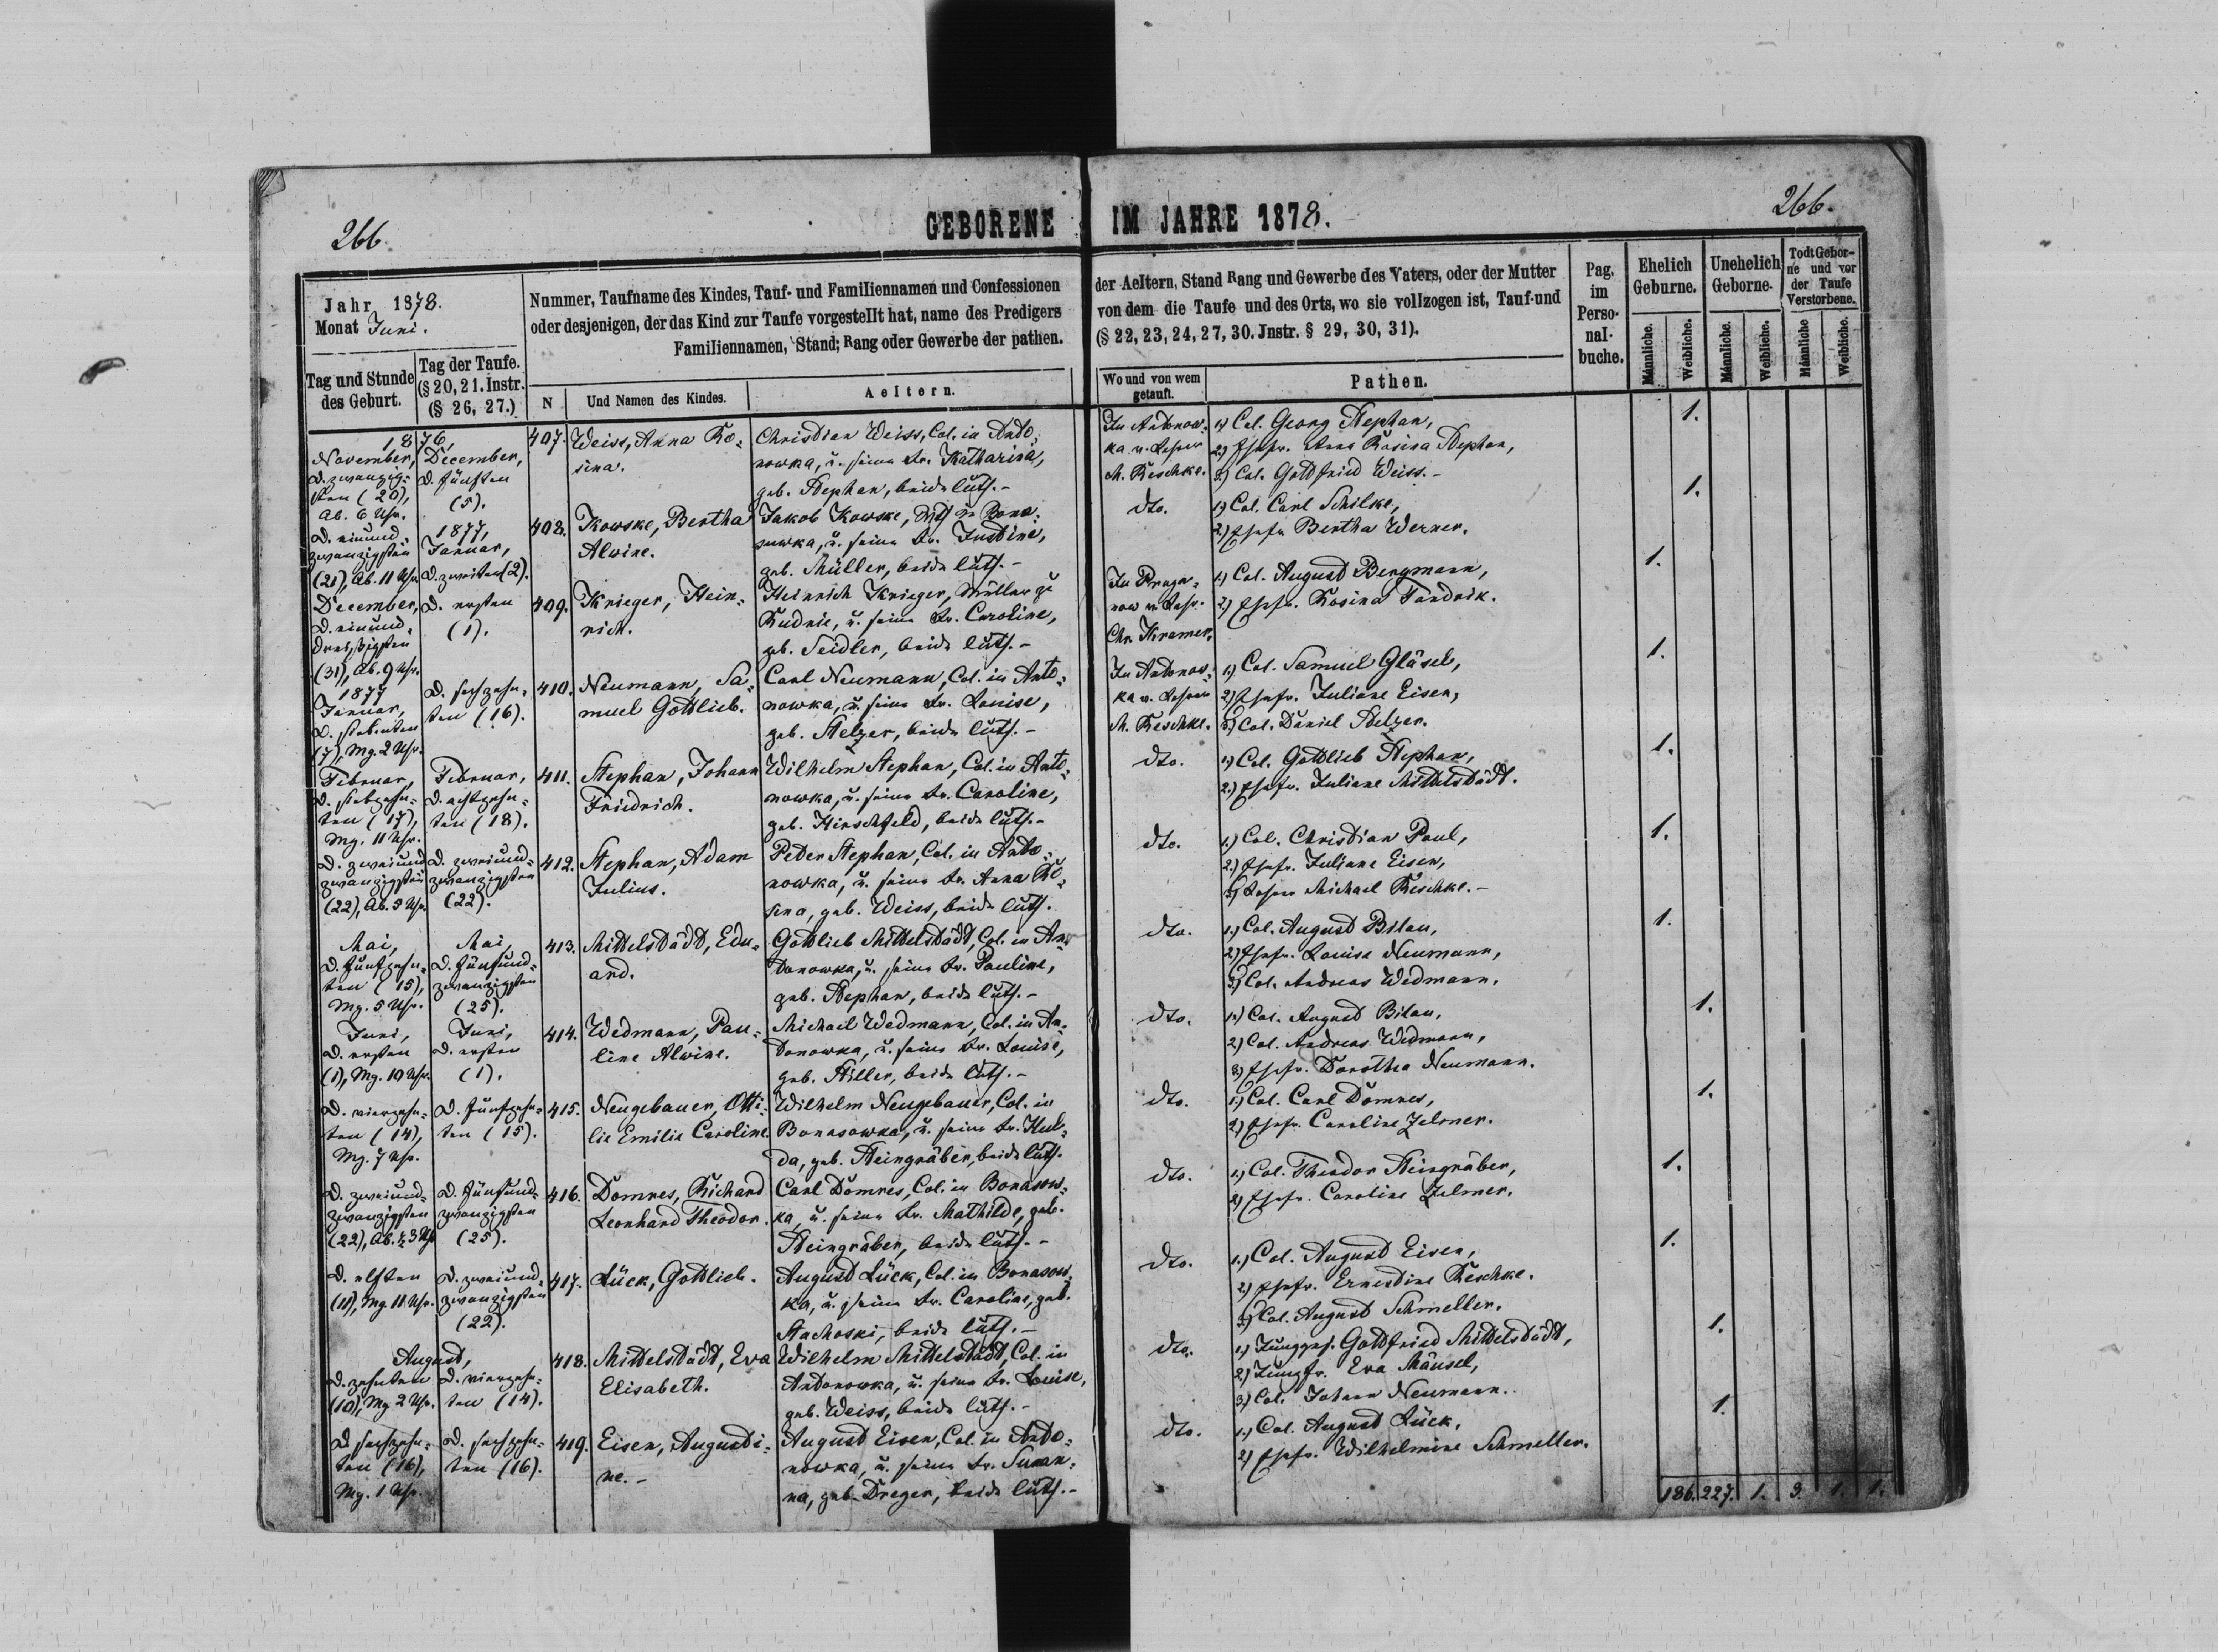 266.
GEBORENE IM JAHRE 1878.
266.
Jahr 1878.
Monat Juni.
Tag und Stunde des Geburt.
Tag der Taufe.
(§ 20, 21. Instr.
(§ 26, 27.)
Nummer, Taufname des Kindes, Tauf- und Familiennamen und Confessionen
oder desjenigen, der das Kind zur Taufe vorgestellt hat, name des Predigers
Familiennamen, Stand; Rang oder Gewerbe der pathen.
N
Und Namen des Kindes.
Aeltern.
der Aeltern, Stand Rang und Gewerbe des Vaters, oder der Mutter
von dem die Taufe und des Orts, wo sie vollzogen ist, Tauf-und
(§ 22, 23, 24, 27, 30. Jnstr. § 29, 30, 31).
Wo und von wem
getauft.
Pathen.
Pag.
im
Perso-
nal-
buche.
Ehelich
Geburne.
Unehelich
Geborne.
Todt Gebor-
ne und vor
der Taufe
Verstorbene.
Männliche.
Weibliche.
Männliche.
Weibliche.
Männliche
Weibliche.
1876,
November,
d. zwanzig-
sten (20),
Ab. 6 Uhr.
December,
d. fünften
(5).
407.
Weiss, Anna Ro-
sina.
Christian Weiss, Col. in Anto-
nowka, u. seine Fr. Katharina,
geb. Stephan, beide luth.-
In Antonow-
ka v. Lehrer
M. Reschke.
1.) Col. Georg Stephan,
2.) Ehefr. Anna Rosina Stephan,
3.) Col. Gottfried Weiss.-
1.
d. einund-
zwanzigsten
(21), Ab. 11 Uhr.
1877,
Januar,
d. zweiten (2).
408.
Kowske, Bertha
Alwine.
Jakob Kowske, in Bona-
sowka, u. seine Fr. Justine,
geb. Müller, beide luth.-
dto.
1.) Col. Carl Schilke,
2.) Ehefr. Bertha Werner.
1.
December,
d. einund-
dreißigsten
(31), Ab. 9 Uhr.
d. ersten
(1).
409.
Krieger, Hein-
rich.
Heinrich Krieger, Müller zu
Rudnie, u. seine Fr. Caroline,
geb. Seidler, beide luth.-
In
now v. Lehr.
Chr. Kramer.
1.) Col. August Bergmann,
2.) Ehefr. Rosina Fandrik.
1.
1877
Januar,
d. siebenten
(7), Mg. 2 Uhr.
d. sechzehn-
ten (16).
410.
Neumann, Sa-
muel Gottlieb.
Carl Neumann, Col. in Anto-
nowka, u. seine Fr. Louise,
geb. Stelzer, beide luth.-
In Antonow-
ka v. Lehrer
M. Reschke.
1.) Col. Samuel Gläsel,
2.) Ehefr. Juliane Eisen,
3.) Col. Daniel Stelzer.
1.
Februar,
d. siebzehn-
ten (17),
Mg. 11 Uhr.
Februar,
d. achtzehn-
ten (18).
411.
Stephan, Johann
Friedrich.
Wilhelm Stephan, Col. in Anto-
nowka, u. seine Fr. Caroline,
geb. Hirschfeld, beide luth.-
dto.
1.) Col. Gottlieb Stephan,
2.) Ehefr. Juliane Mittelstädt.
1.
d. zweiund-
zwanzigsten
(22), Ab. 5 Uhr.
d. zweiund-
zwanzigsten
(22).
412.
Stephan, Adam
Julius.
Peter Stephan, Col. in Anto-
nowka, u. seine Fr. Anna Ro-
sina, geb. Weiss, beide luth.
dto.
1.) Col. Christian Paul,
2.) Ehefr. Juliane Eisen,
3.) Lehrer Michael Reschke.-
1.
Mai,
d. fünfzehn-
ten (15),
Mg. 5 Uhr.
Mai,
d. fünfund-
zwanzigsten
(25).
413.
Mittelstädt, Edu-
ard.
Gottlieb Mittelstädt, Col. in An-
tonowka, u. seine Fr. Pauline,
geb. Stephan, beide luth.-
dto.
1.) Col. August Bilau,
2.) Ehefr. Louise Neumann,
3.) Col. Andreas Wedmann.
1.
Juni,
d. ersten
(1), Mg. 10 Uhr.
Juni,
d. ersten
(1).
414.
Wedmann, Pau-
line Alwine.
Michael Wedmann, Col. in An-
tonowka, u. seine Fr. Louise,
geb. Stiller, beide luth.-
dto.
1.) Col. August Bilau,
2.) Col. Andreas Widmann,
3.) Ehefr. Dorothea Neumann.
1.
d. vierzehn-
ten (14),
Mg. 7 Uhr.
d. fünfzehn-
ten (15).
415.
Neugebauer, Otti-
lie Emilie Caroline.
Wilhelm Neugebauer, Col. in
Bonasowka, u. seine Fr. Hul-
da, geb. Steingräber, beide luth.
dto.
1.) Col. Carl Domres,
2.) Ehefr. Caroline Zelmer.
1.
d. zweiund-
zwanzigsten
(22), Ab. ½3 Uhr
d. fünfund-
zwanzigsten
(25).
416.
Domres, Richard
Leonhard Theodor.
Carl Domres, Col. in Bonasow-
ka, u. seine Fr. Mathilde, geb.
Steingräber, beide luth.-
dto.
1.) Col. Theodor Steingräber,
2.) Ehefr. Caroline Zelmer.
1.
d. elften
(11), Mg. 11 Uhr.
d. zweiund-
zwanzigsten
(22).
417.
Lück, Gottlieb.
August Lück, Col. in Bonasow-
ka, u. seine Fr. Caroline, geb.
Stachoski, beide luth.-
dto.
1.) Col. August Eisen,
2.) Ehefr. Ernestine Reschke.
3.) Col. August Schmeller.
1.
August,
d. zehnten
(10), Mg. 2 Uhr.
d. vierzehn-
ten (14).
418.
Mittelstädt, Eva
Elisabeth.
Wilhelm Mittelstädt, Col. in
Antonowka, u. seine Fr. Louise,
geb. Weiss, beide luth.-
dto.
1.) Junggs. Gottfried Mittelstädt,
2.) Jungfr. Eva Mäusel,
3.) Col. Johann Neumann.
1.
d. sechzehn-
ten (16),
Mg. 1 Uhr.
d. sechzehn-
ten (16).
419.
Eisen, Augusti-
ne.-
August Eisen, Col. in Anto-
nowka, u. seine Fr. Susan-
na, geb. Dreger, beide luth.-
dto.
1.) Col. August Lück,
2.) Ehefr. Wilhelmine Schmeller.
1.
186. 227. 1. 3. 1. 1.